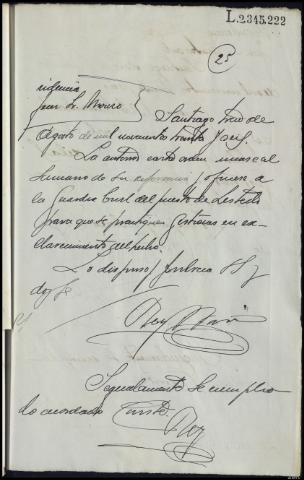 L.2.345,222
25
Juez Sr. Mouro
Santiago tres de
Agosto de mil novecientos treinta y seis.
La anterior carta orden únase al
sumario de su referencia y oficiese a
la Guardia Civil del puesto de Lestedo
para que se practiquen gestiones en es-
clarecimiento del hecho.
Lo dispuso y rubrica SSª
doy fe
Rey
Seguidamente se cumplio
lo acordado doy fe
Rey